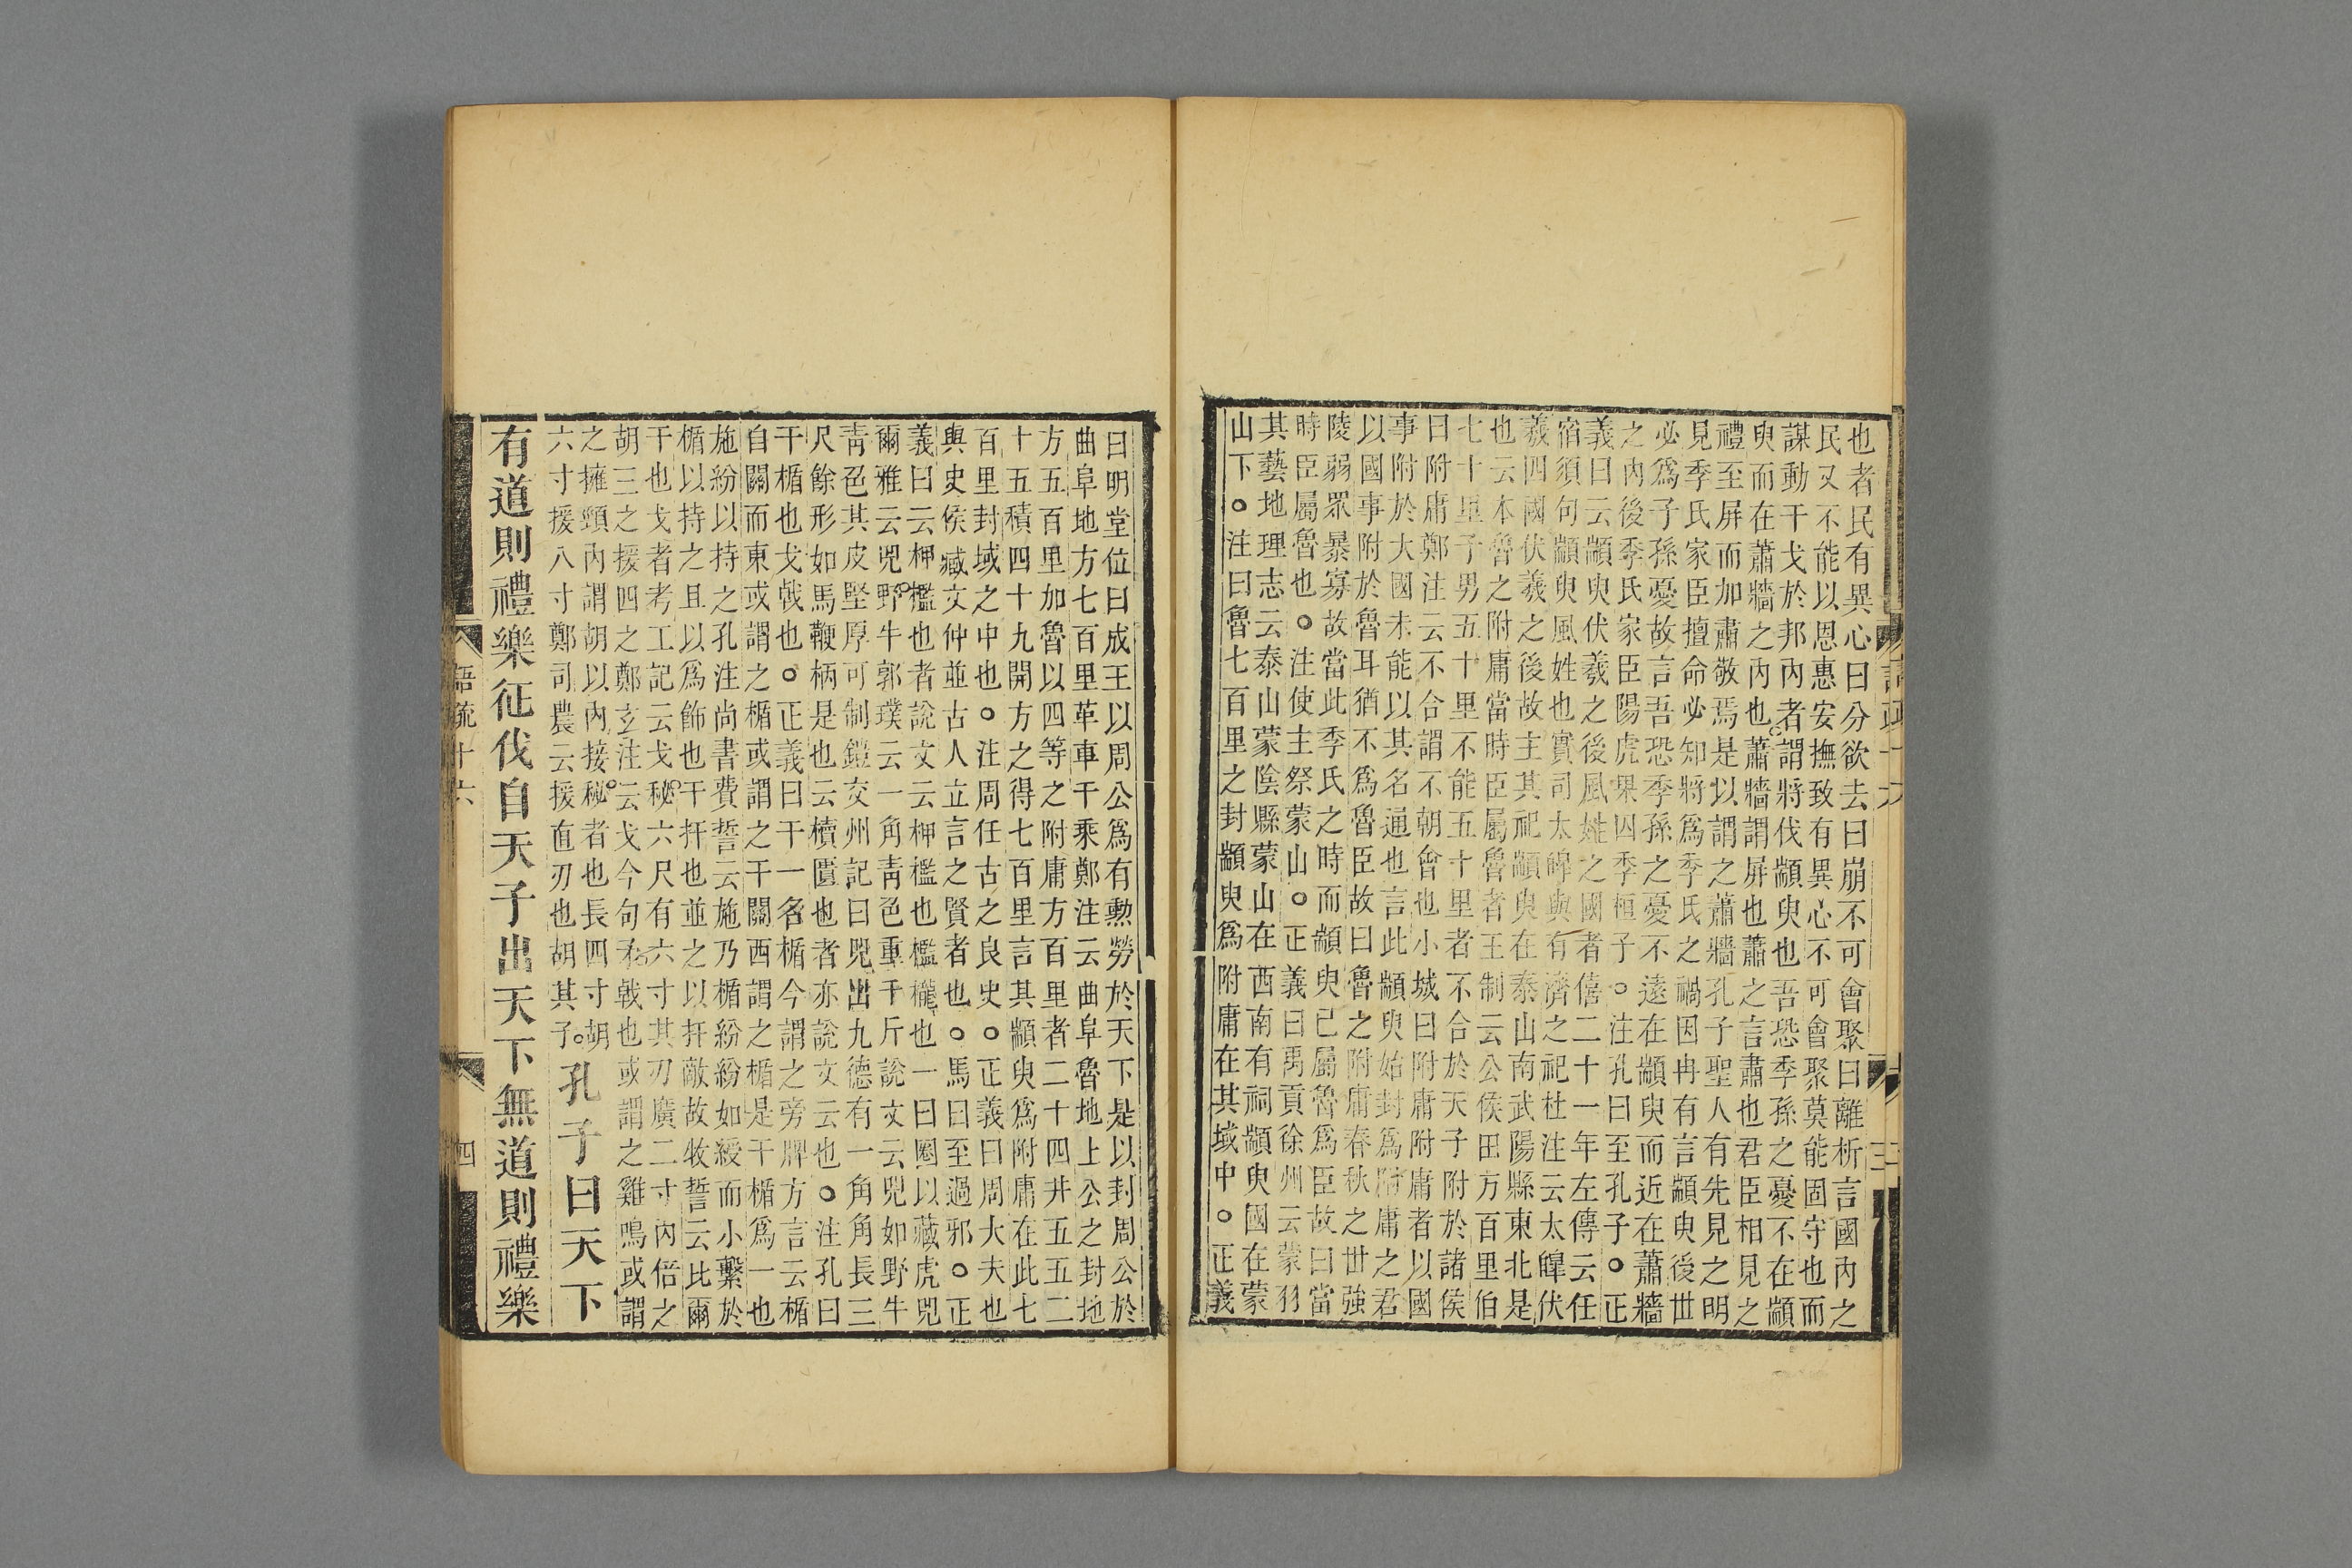 也者民有異心曰分欲去曰崩不可會聚曰離析言國內之
民又不能以恩惠安撫致有異心不可會聚莫能固守也而
謀動干戈於邦內者謂將伐顓臾也吾恐季孫之憂不在顓
臾而在蕭牆之內也蕭牆謂屏也蕭之言肅也君臣相見之
禮至屏而加肅敬焉是以謂之蕭牆孔子聖人有先見之明
見季氏家臣擅命必知將爲季氏之禍因冉有言顓臾後世
必爲子孫憂故言吾恐季孫之憂不遠在顓臾而近在蕭牆
之內後季氏家臣陽虎果囚季桓子○注孔曰至孔子○正
義曰云顓臾伏羲之後風姓之國者僖二十一年左傳云任
宿須句顓臾風姓也實司太皞與有濟之祀杜注云太皞伏
羲四國伏羲之後故主其祀顓臾在泰山南武陽縣東北是
也云本魯之附庸當時臣屬魯者王制云公侯田方百里伯
七十里子男五十里不能五十里者不合於天子附於諸侯
曰附庸鄭注云不合謂不朝會也小城曰附庸附庸者以國
事附於大國未能以其名通也言此顓臾始封爲附庸之君
以國事附於魯耳猶不爲魯臣故曰魯之附庸春秋之世強
陵弱眾暴寡故當此季氏之時而顓臾已屬魯爲臣故曰當
時臣屬魯也○注使主祭蒙山○正義曰禹貢徐州云蒙羽
其藝地理志云泰山蒙陰縣蒙山在西南有祠顓臾國在蒙
山下○注曰魯七百里之封顓臾爲附庸在其域中○正義
曰明堂位曰成王以周公爲有勳勞於天下是以封周公於
曲阜地方七百里革車千乘鄭注云曲阜魯地上公之封地
方五百里加魯以四等之附庸方百里者二十四井五五二
十五積四十九開方之得七百里言其顓臾爲附庸在此七
百里封域之中也○注周任古之良史○正義曰周大夫也
與史佚臧文仲並古人立言之賢者也○馬曰至過邪○正
義曰云柙檻也者說文云柙檻也檻櫳也一曰圈以藏虎兕
爾雅云兕野牛郭璞云一角靑色重千斤說文云兕如野牛
靑色其皮堅厚可制鎧交州記曰兕出九德有一角角長三
尺餘形如馬鞭柄是也云櫝匱也者亦說文云也○注孔曰
干楯也戈戟也○正義曰干一名楯今謂之旁牌方言云楯
自關而東或謂之楯或謂之干關西謂之楯是干楯爲一也
施紛以持之孔注尚書費誓云施乃楯紛紛如綬而小繫於
楯以持之且以爲飾也干扞也並之以扞敵故牧誓云比爾
干也戈者考工記云戈柲六尺有六寸其刃廣二寸內倍之
胡三之援四之鄭玄注云戈今句孑戟也或謂之雞鳴或謂
之擁頸內謂胡以內接柲者也長四寸胡
六寸援八寸鄭司農云援直刃也胡其子○孔子曰天下
有道則禮樂征伐自天子出天下無道則禮樂
語疏十六
四